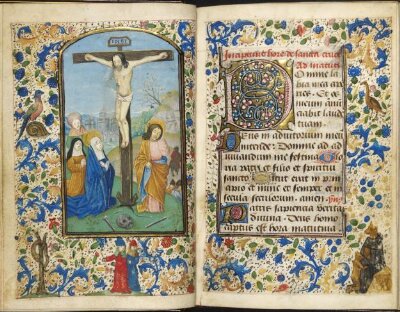 INRI
Incipiunt hore de sancta cruce
Ad matuti
Domine la
bia mea ape
ries. Et os
meum anū
ciabit laudē
tuam.
Deus in adiutorium meū
intende: Domine ad ad
iuuandum me festina Glo
ria patri et filio et spiritui
sancto Sicut erat in prin
cipio et nunc et semper et in
secula seculorum. amen
Patris sapientia verita
diuina. Deus homo
captus est hora matutina